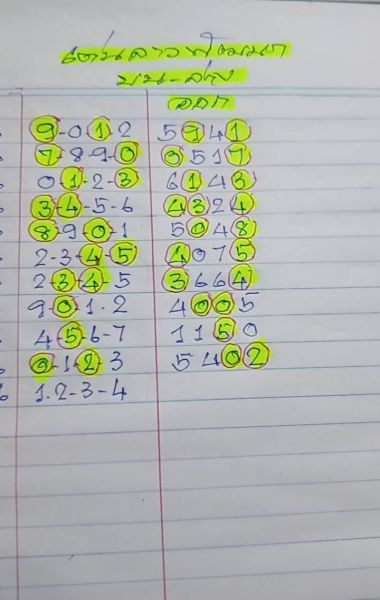 เด่นลาวพัฒนา
บน-ล่าง
ออก
9-0-1-2 5941
7-8-9-0 0517
0-1-2-3 6143
3-4-5-6 4324
8-9-0-1 5048
2-3-4-5 4075
2-3-4-5 3664
9-0-1-2 4005
4-5-6-7 1150
0-1-2-3 5402
1-2-3-4